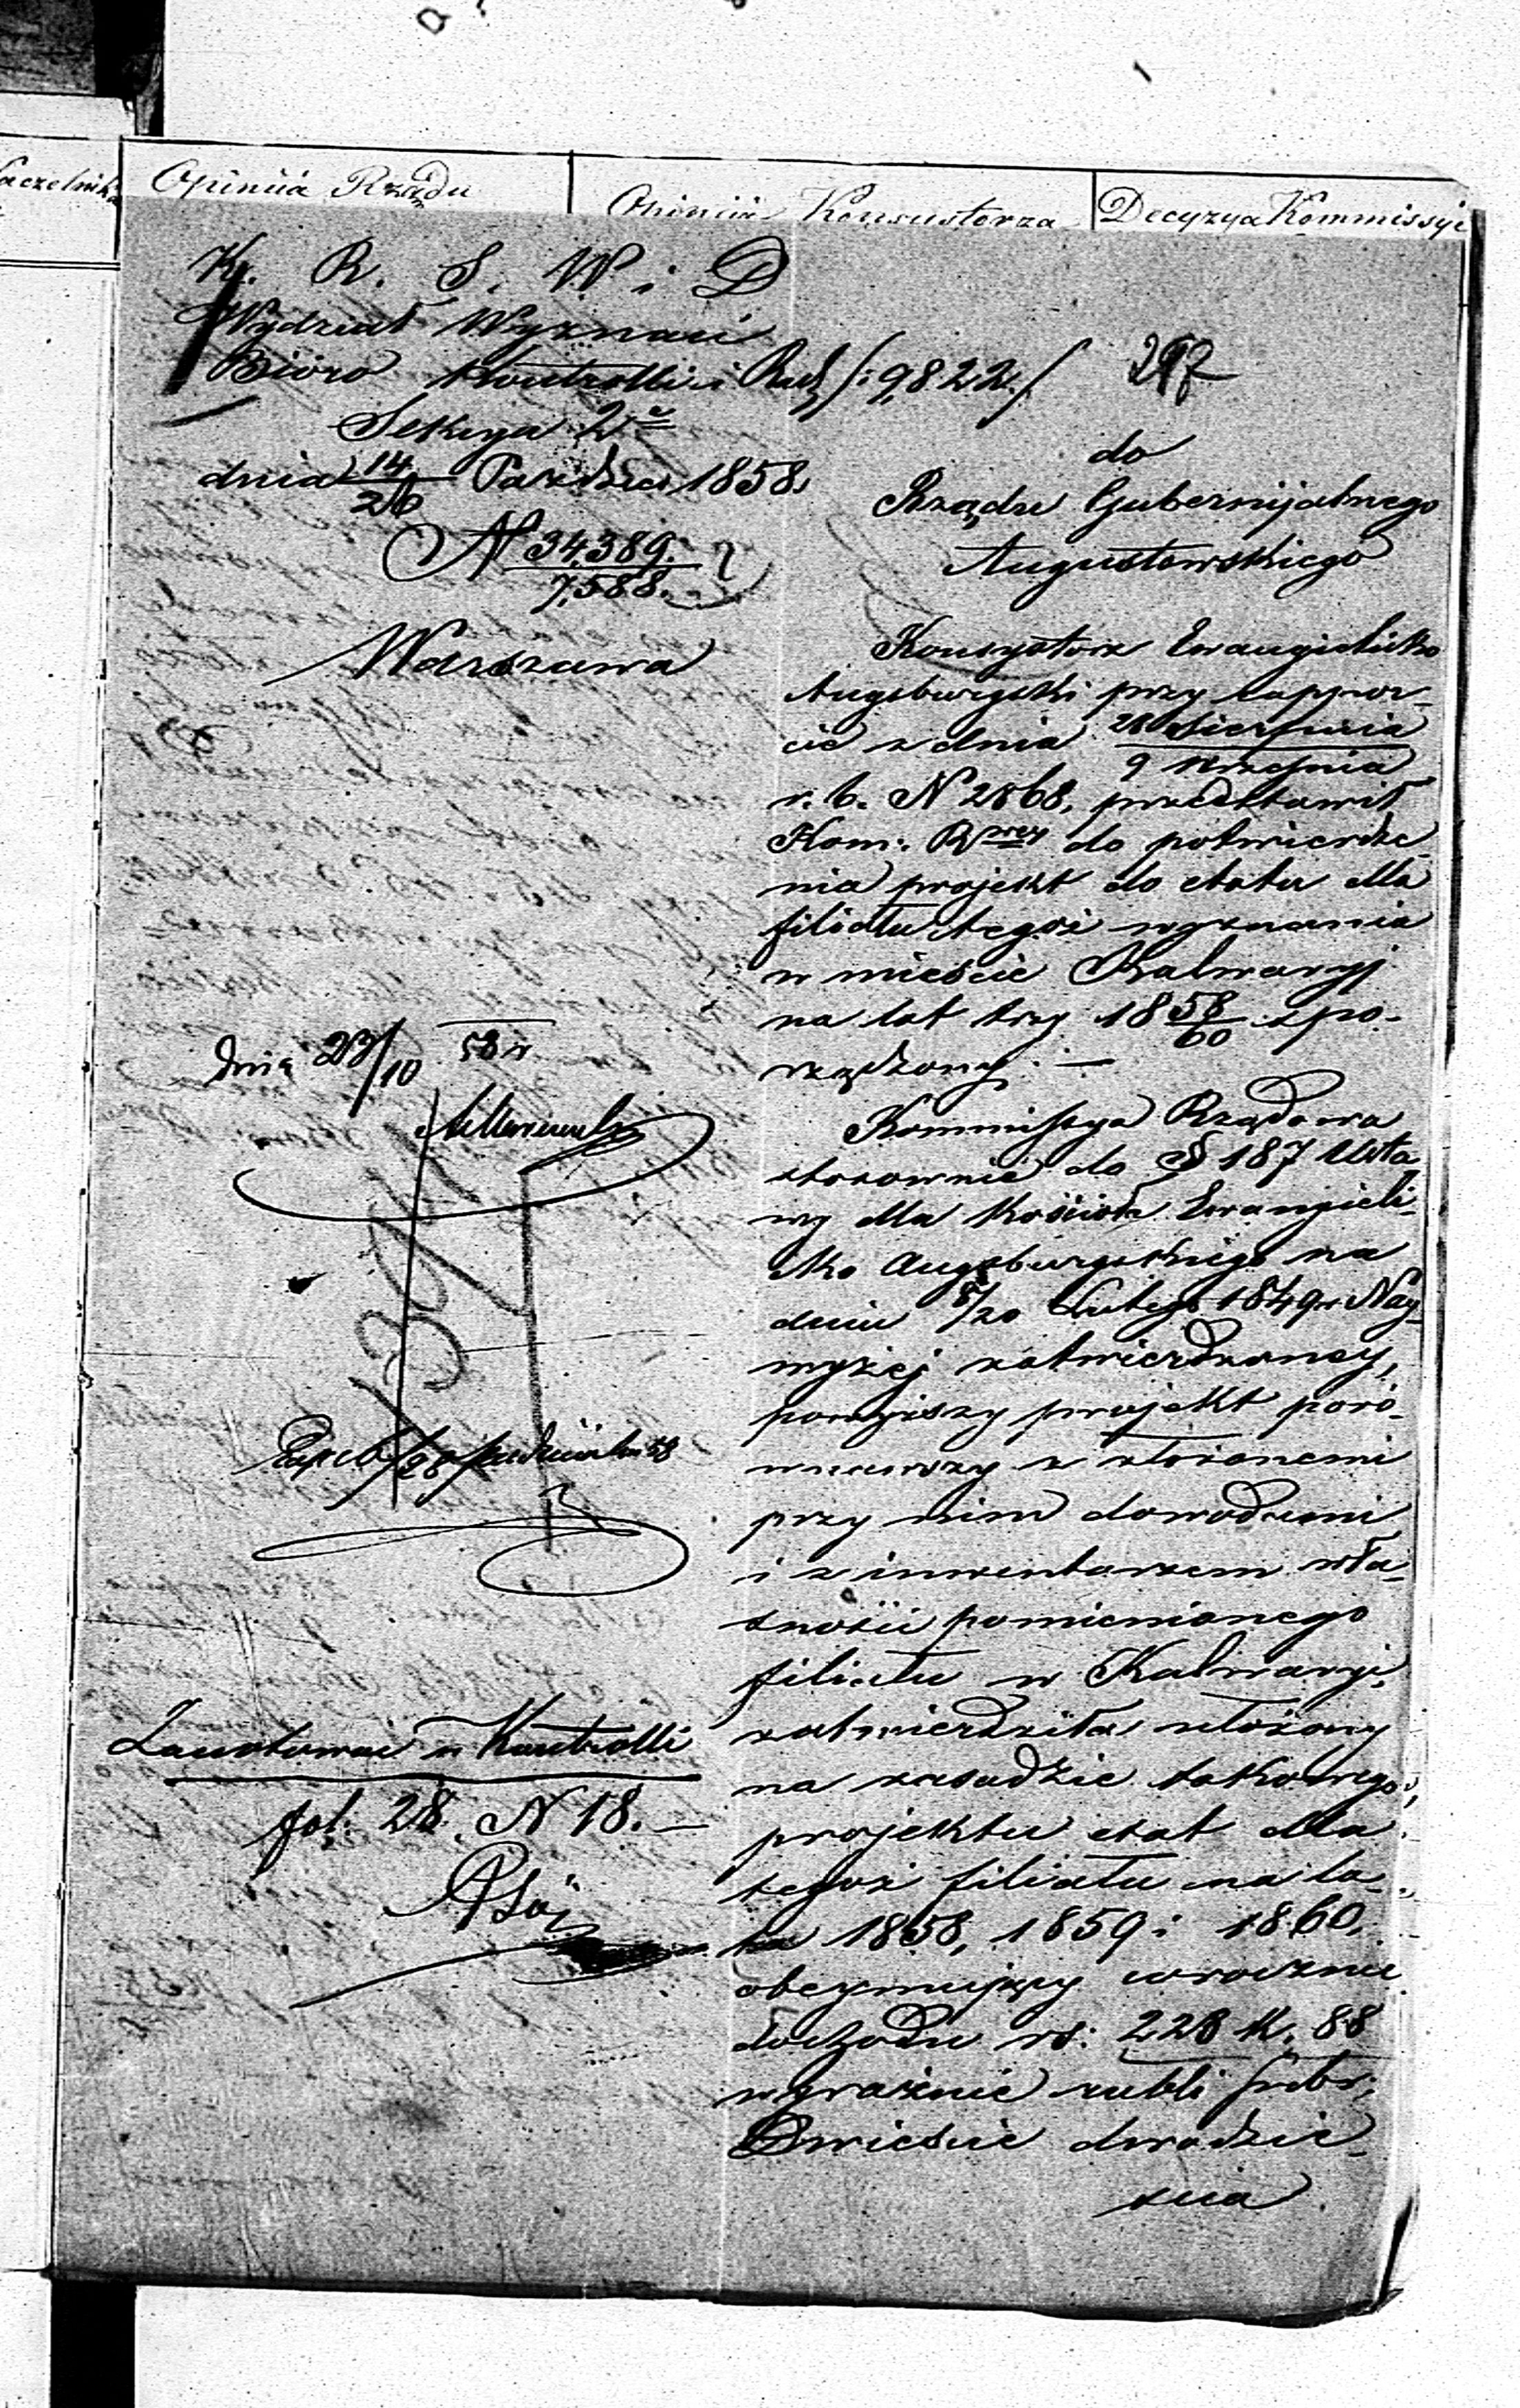 Opiniia Rządu
Opiniia Konsystorza
Decyzya Kommissyi
K. R. S. W. i D
Wydział Wyznań
Bióro Kontrolli i Rach /: 9822 /
297
Sekcya 2a
dnia 14/26 Paździer. 1858.
N 34,389.
7,588.
Warszawa
do
Rządu Gubernijalnego
Augustowskiego
Konsystorz Ewangielicko
Augsburgski przy rappor-
cie z dnia 28 Sierpnia
9 Września
r. b. N 2868, przedstawił
Kom: Rzwey do potwierdze-
nia projekt do etatu dla
filiału tegoż wyznania
w mieście Kalwaryj
na lat trzy 1858/60 spo-
rządzony. —
Kommissya Rządowa
stosownie do § 187 Usta-
wy dla Kościoła Ewangieli-
cko Augsburgskiego na
dniu 8/20 Lutego 1849 r. Nay-
wyżej zatwierdzoney,
powyższy projekt poró-
wnawszy z złożonemi
przy nim dowodami
i z inwentarzem wła-
sności pomienionego
filiału w Kalwaryi,
zatwierdziła ułożony
na zasadzie takowego
projektu etat dla
tegoż filiału na la-
ta 1858, 1859 i 1860,
obeymujący corocznie
dochodu rs: 228 k. 88
wyraźnie rubli srebr:
Dwieście dwadzie-
scia
dnia 23/10 58 r
Zanotowano w Kontrolli
fol. 28. N 18. —